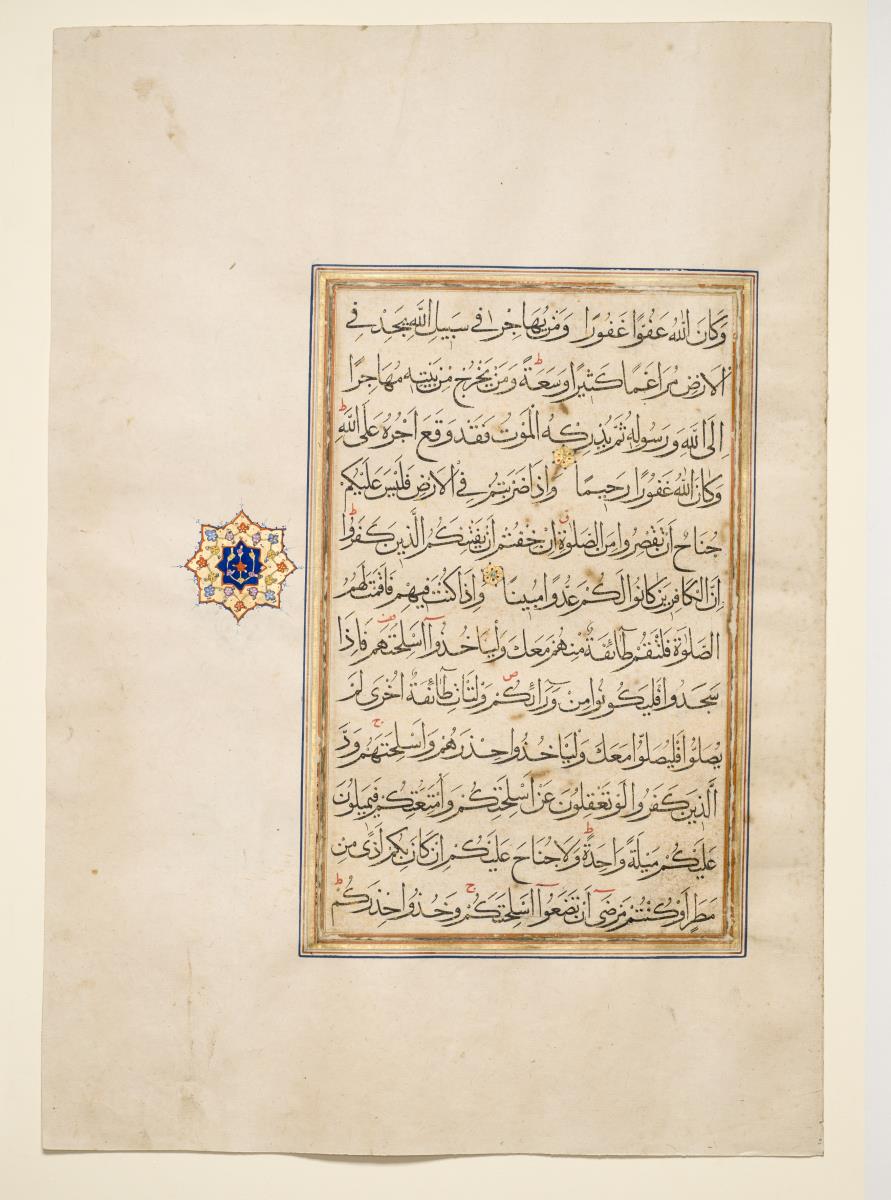 وَكَانَ اللّٰهُ عَفُوًّا غَفُورًا وَمَنْ يُهَاجِرْ فِي سَبِيلِ اللّٰهِ يَجِدْ فِي
الْاَرْضِ مُرَاغَمًا كَثِيرًا وَسَعَةً ط وَمَنْ يَخْرُجْ مِنْ بَيْتِهٖ مُهَاجِرًا
اِلَى اللّٰهِ وَرَسُولِهٖ ثُمَّ يُدْرِكْهُ الْمَوْتُ فَقَدْ وَقَعَ اَجْرُهُ عَلَى اللّٰهِ ط
وَكَانَ اللّٰهُ غَفُورًا رَحِيمًا وَاِذَا ضَرَبْتُمْ فِي الْاَرْضِ فَلَيْسَ عَلَيْكُمْ
جُنَاحٌ اَنْ تَقْصُرُوا مِنَ الصَّلٰوةِ ق اِنْ خِفْتُمْ اَنْ يَفْتِنَكُمُ الَّذِينَ كَفَرُوا ط
اِنَّ الْكَافِرِينَ كَانُوا لَكُمْ عَدُوًّا مُبِينًا وَاِذَا كُنْتَ فِيهِمْ فَاَقَمْتَ لَهُمُ
الصَّلٰوةَ فَلْتَقُمْ طَآئِفَةٌ مِنْهُمْ مَعَكَ وَلْيَأْخُذُوٓا اَسْلِحَتَهُمْ قف فَاِذَا
سَجَدُوا فَلْيَكُونُوا مِنْ وَرَآئِكُمْ ص وَلْتَأْتِ طَآئِفَةٌ اُخْرٰى لَمْ
يُصَلُّوا فَلْيُصَلُّوا مَعَكَ وَلْيَأْخُذُوا حِذْرَهُمْ وَاَسْلِحَتَهُمْ ج وَدَّ
الَّذِينَ كَفَرُوا لَوْ تَغْفُلُونَ عَنْ اَسْلِحَتِكُمْ وَاَمْتِعَتِكُمْ فَيَمِيلُونَ
عَلَيْكُمْ مَيْلَةً وَاحِدَةً ط وَلَا جُنَاحَ عَلَيْكُمْ اِنْ كَانَ بِكُمْ اَذًى مِنْ
مَطَرٍ اَوْ كُنْتُمْ مَرْضٰٓى اَنْ تَضَعُوٓا اَسْلِحَتَكُمْ ج وَخُذُوا حِذْرَكُمْ ط